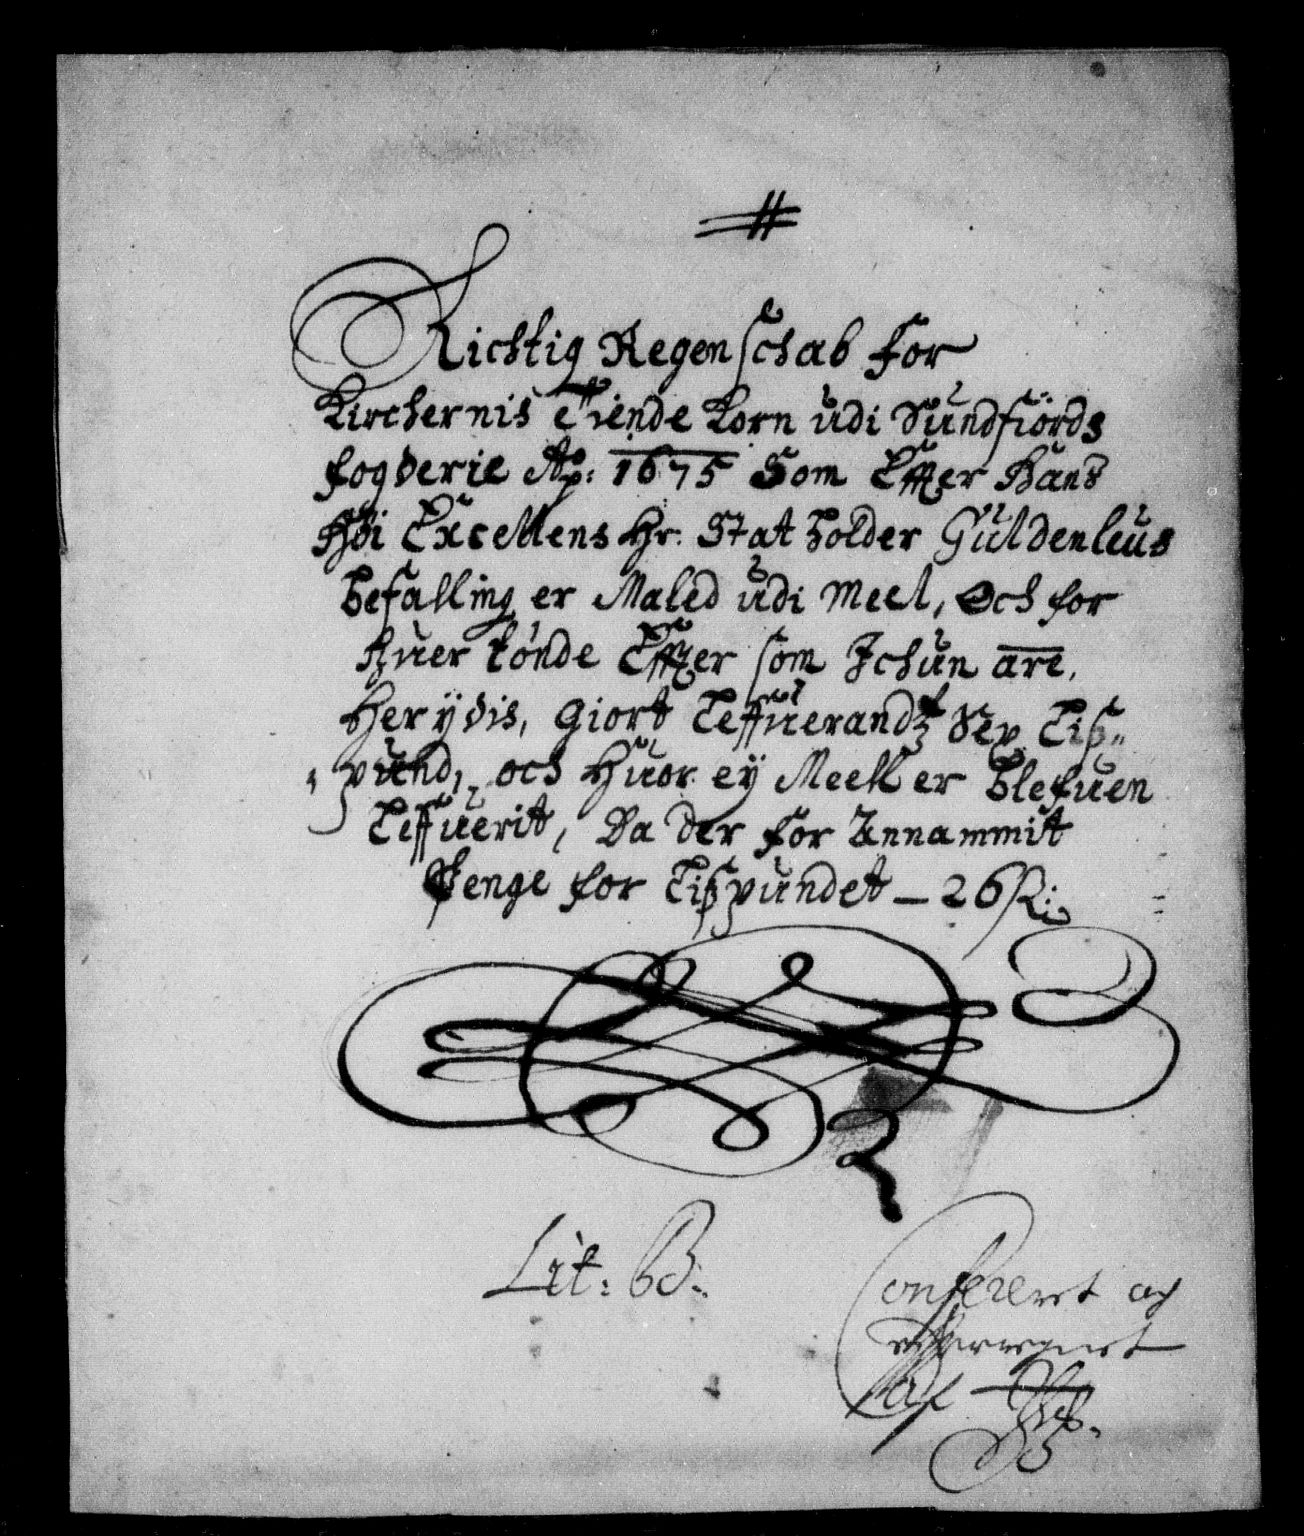 Richtig Regenschab for
Kirchernis Tiende Korn udi Sundfiörds
fogderie Ao: 1675 Som Effter Hans
Høi Excellens Hr. Stat holder Güldenleus
befalling er Maled udi Meel, Och for
huer tønde Effter som Ichun are,
Herÿdis, Giort Leffuerandtz Sex Lis„
„pund, och Huor eÿ Meell er blefuen
Leffuerit, Da der for Annammit
Penge for Lispundet – 26 ß:
Lit: B:
Confereret og
effterregnet
af